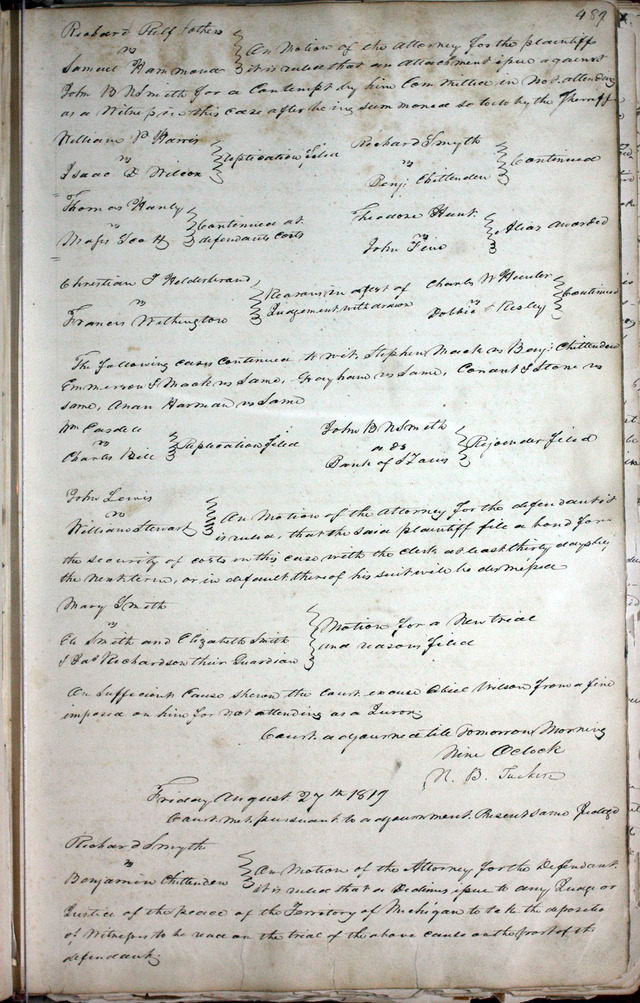 489
Richard Relf & others
vs
Samuel Hammond
On Motion of the Attorney for the plaintiff
it is ruled that an attachment issue against
John B N Smith for a Contempt by him Committed in not attending
as a Witness in this case after being summoned so to do by the Sheriff
William P Harris
vs
Isaac D Wilcox
Replication filed
Richard Smyth
vs
Benj: Chittenden
Continued
Thomas Hanly
vs
Moses Scott
Continued at
defendants Costs
Theodore Hunt
vs
John
Alias awarded
Christian T Helderbrand
vs
Francis Wethington
Reasons in arest of
Judgement withdrawn
Charles W Hunter
vs
& Risley
Continued
The following cases Continued to wit, Stephen Mack vs Benj: Chittenden
Emmerson & Mack vs Same, Grayham vs Same, Conant & Stone vs
same, Harman vs Same
Wm
vs
Charles
Replication filed
John B N Smith
Bank of St Louis
Rejoinder filed
John Lewis
vs
William Stewart
On Motion of the Attorney for the defendant it
is ruled, that the said plaintiff file a bond for
the security of costs in this case with the Clerk at least thirty days by
the next term, or in default thereof his suit will be dismissed
Mary Smith
vs
Eli Smith and Elizabeth Smith
& Jas Richardson their Guardian
Motion for a New trial
and reasons filed
On Sufficient Cause shewn the Court excuse Abiel Wilson from a fine
imposed on him for not attending as a Juror.
Court adjourned till Tomorrow Morning
Nine Oclock
N. B. Tucker
Friday August 27th 1819
Court met pursuant to adjournment. Present same Judge
Richard Smyth
vs
Benjamin Chittenden
On Motion of the Attorney for the Defendant
it is ruled that a Dedimus issue to any Judge or
Justice of the peace of the Territory of Michigan to take the deposition
of Witnesses to be read on the trial of the above cause on the part of the
defendant.